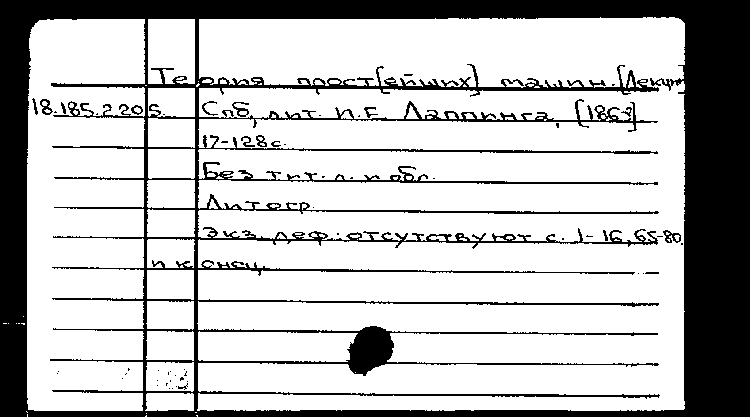 Теория прост[ейших] машин. [Лекции]
18.185.2.205 Спб, лит. И.Е. Лаппинга, [186-?].
17-128 с.
Без тит. л. и обл.
Литогр.
Экз. деф.: отсутствуют с. 1-16, 65-80
и конец.